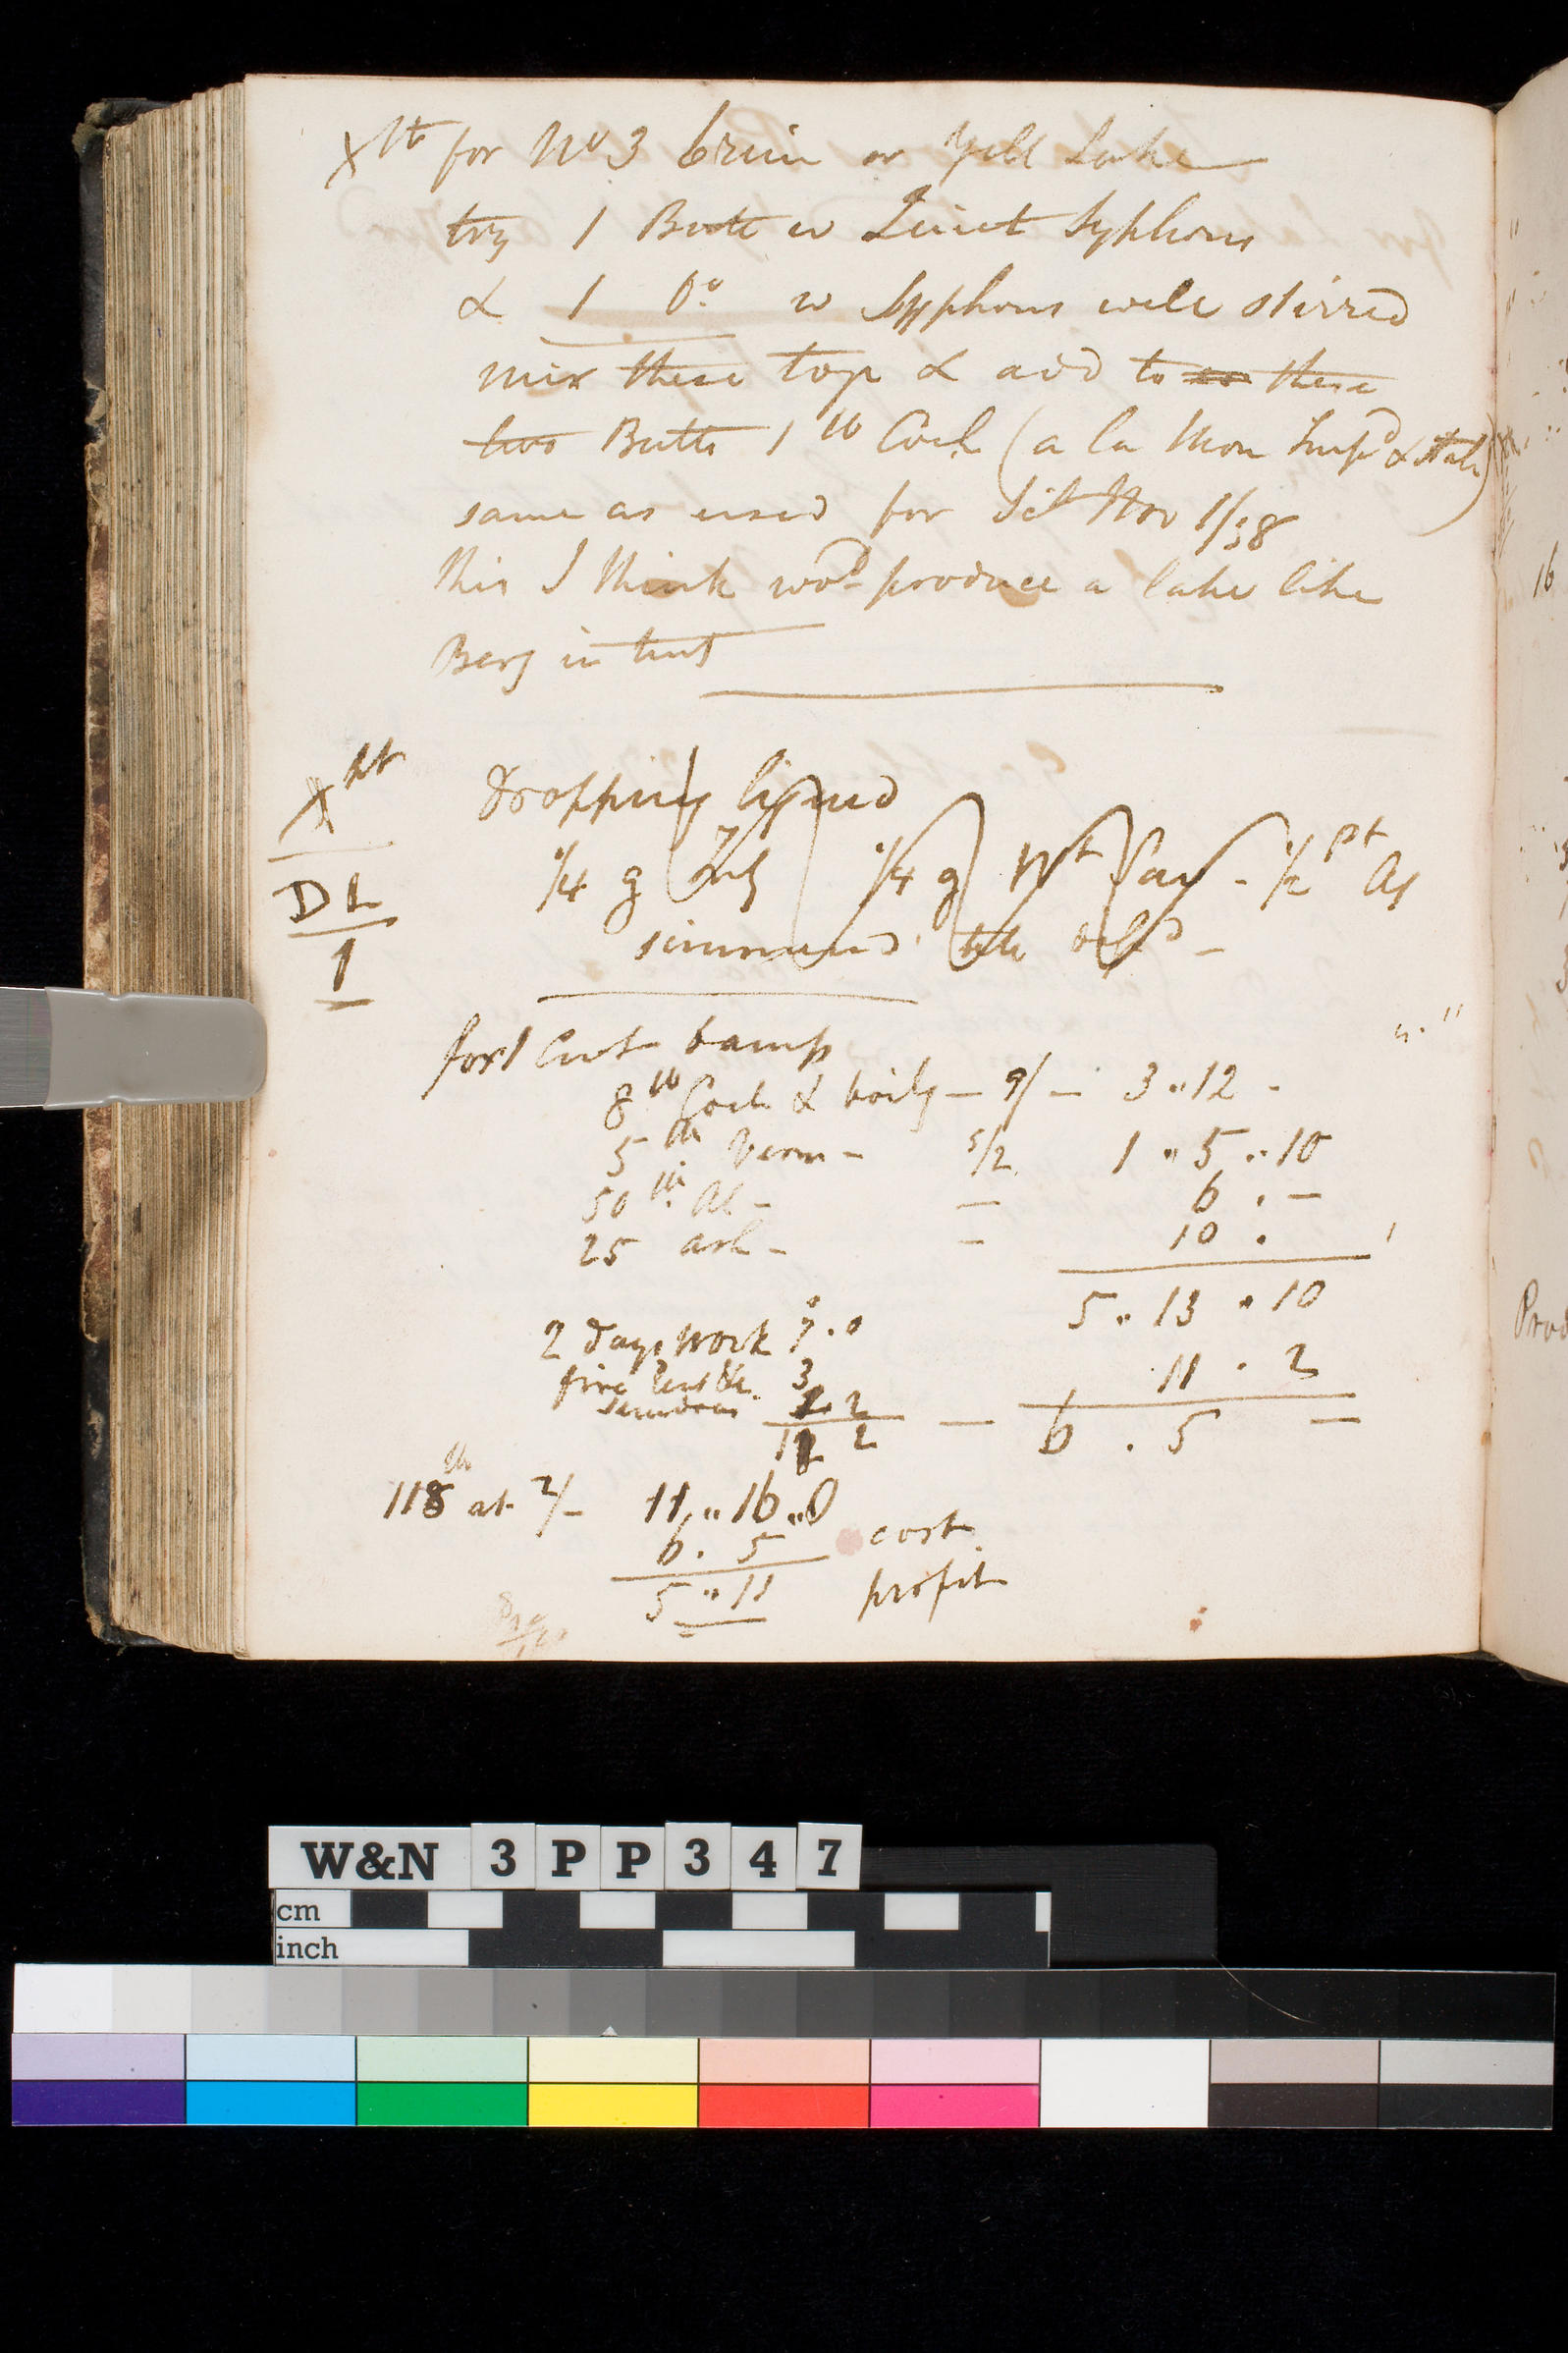 Xpt for No 3 brim or Yell Lake
try 1 Butt w Quiet Syphons
& 1 Do w Syphons well stirred
mix these top & add to these
two Butts 1 lb Coch (a la Mon Supd &
same as used for Nov 1/38
this I think wod produce a lake like
Berg in tint
Xpt
DL
1
dropping liquid
1/4 g 1/4 g Wt - 1/2 pt
simmered till
for 1 Cwt
8 lb Coch & boilg — 9/ — 3 " 12 -
5 lb Verm - 5/2 1 " 5 " 10
50 lb Al - — 6 . —
25 ash - — 10 .
5 " 13 " 10
2 days work 7 . 0
11 . 2
fire rent &c. 3
sundries 1.2
11 2 — 6 . 5 —
118 lb at 2/- 11 " 16 " 0
6 . 5 cost
5 " 11 profit
16
Prod
W&N 3PP347
cm
inch